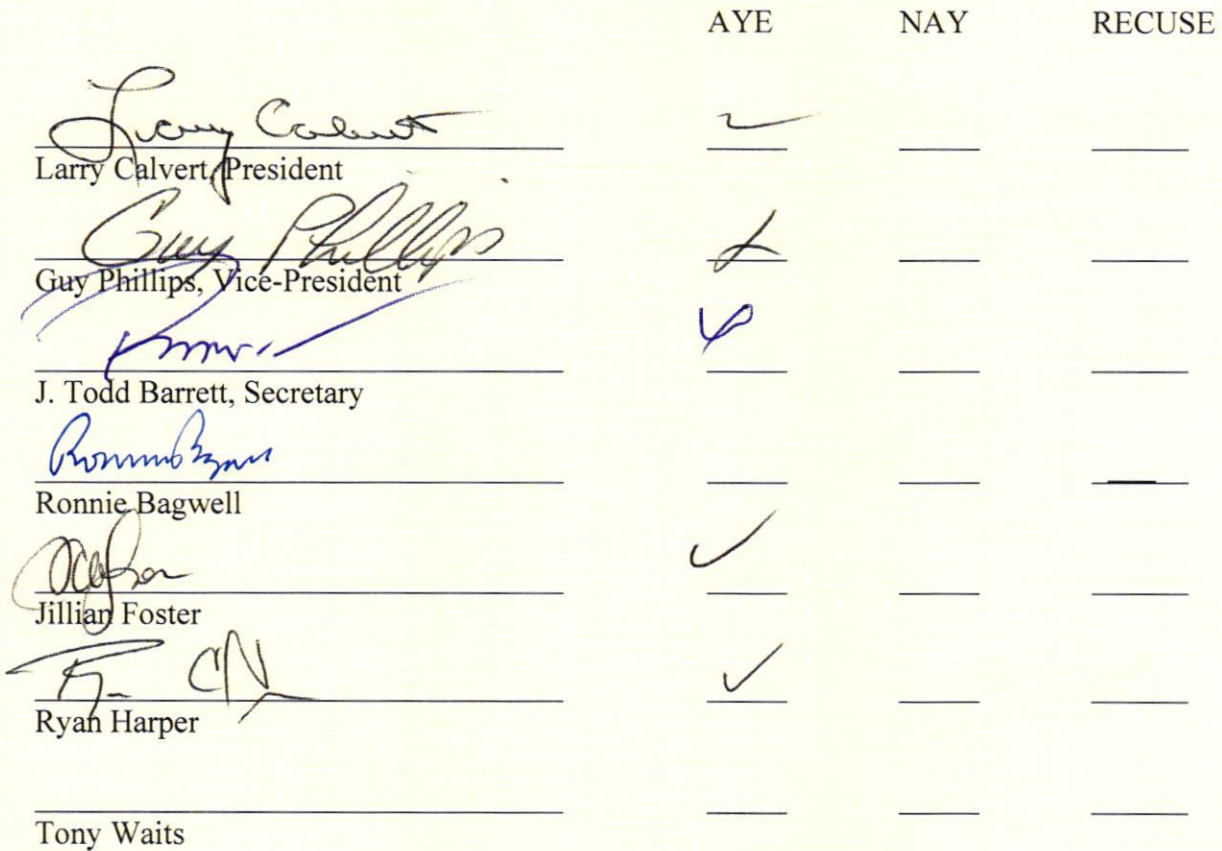 AYE NAY RECUSE
Larry Calvert
Larry Calvert, President
Guy Phillips
Guy Phillips, Vice-President
J. Todd Barrett, Secretary
Ronnie Bagwell
Jillian Foster
Ryan Harper
Tony Waits